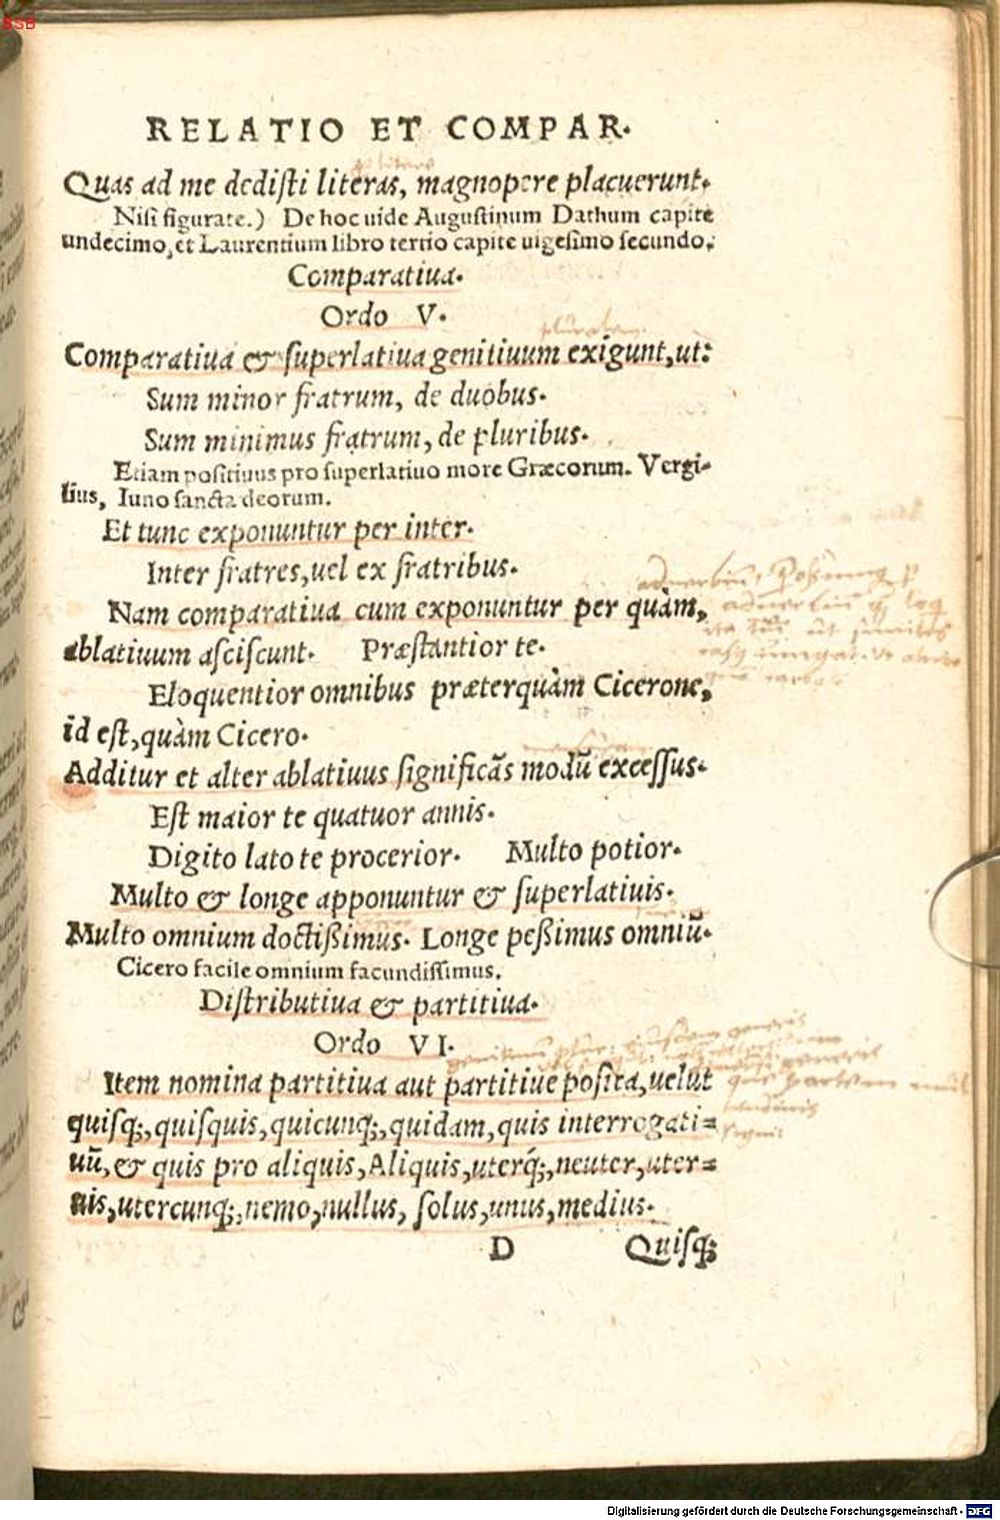 BSB
RELATIO ET COMPAR.
Quas ad me dedisti literas, magnopere placuerunt.
Nisi figurate.) De hoc uide Augustinum Dathum capite
undecimo, et Laurentium libro tertio capite uigesimo secundo.
Comparatiua.
Ordo V.
Comparatiua & superlatiua genitiuum exigunt, ut:
Sum minor fratrum, de duobus.
Sum minimus fratrum, de pluribus.
Etiam positiuus pro superlatiuo more Græcorum. Vergi-
lius, Iuno sancta deorum.
Et tunc exponuntur per inter.
Inter fratres, uel ex fratribus.
Nam comparatiua cum exponuntur per quàm,
ablatiuum asciscunt. Præstantior te.
Eloquentior omnibus præterquàm Cicerone,
id est, quàm Cicero.
Additur et alter ablatiuus significãs modũ excessus.
Est maior te quatuor annis.
Digito lato te procerior. Multo potior.
Multo & longe apponuntur & superlatiuis.
Multo omnium doctißimus. Longe peßimus omniũ.
Cicero facile omnium facundissimus.
Distributiua & partitiua.
Ordo VI.
Item nomina partitiua aut partitiue posita, uelut
quisq;, quisquis, quicunq;, quidam, quis interrogati-
uũ, & quis pro aliquis, Aliquis, uterq́;, neuter, uter-
uis, utercunq;, nemo, nullus, solus, unus, medius.
D Quisq;
Digitalisierung gefördert durch die Deutsche Forschungsgemeinschaft - DFG